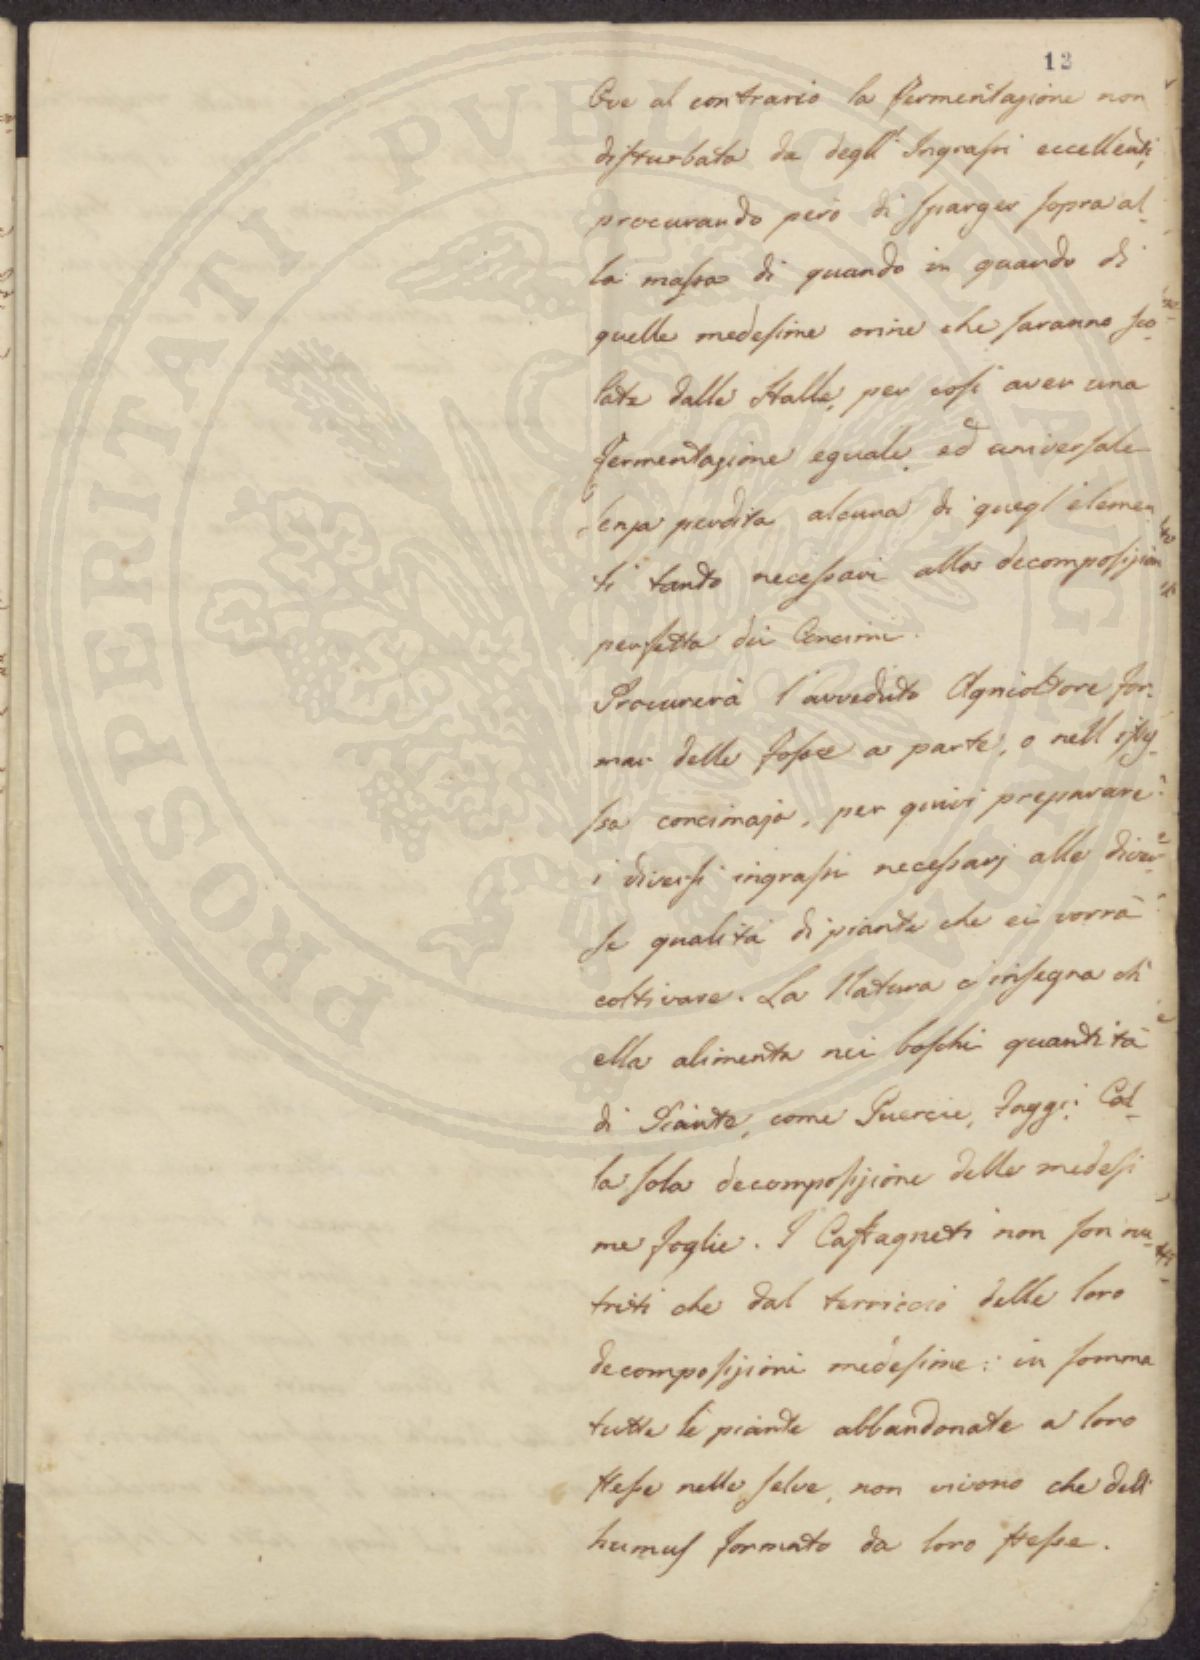 12
Ove al contrario la fermentazione non
disturbata da degl' Ingrassi eccellenti,
procurando però di sparger sopra al-
la massa di quando in quando di
quelle medesime orine che saranno sco-
late dalle stalle, per così aver una
fermentazione eguale, ed universale
senza perdita alcuna di quegl' elemen
ti tanto necessari alla decomposizion
perfetta dei Concimi.
Procurerà l'avveduto Agricoltore for-
mar delle fosse a parte, o nell'istes-
sa concimaja, per quivi preparare
i diversi ingrassi necessarj alle diver-
se qualità di piante che ci vorrà
coltivare. La Natura c'insegna ch'
ella alimenta nei boschi quantità
di Piante, come Querce, Faggi; Col-
la sola decomposizione delle medesi
me foglie. I Castagneti non son nu-
triti che dal terriccio delle loro
decomposizioni medesime: in somma
tutte le piante abbandonate a loro
stesse nelle selve, non vivono che dell'
humus formato da loro stesse.
PROSPERITATI PUBLICAE AUGENDAE